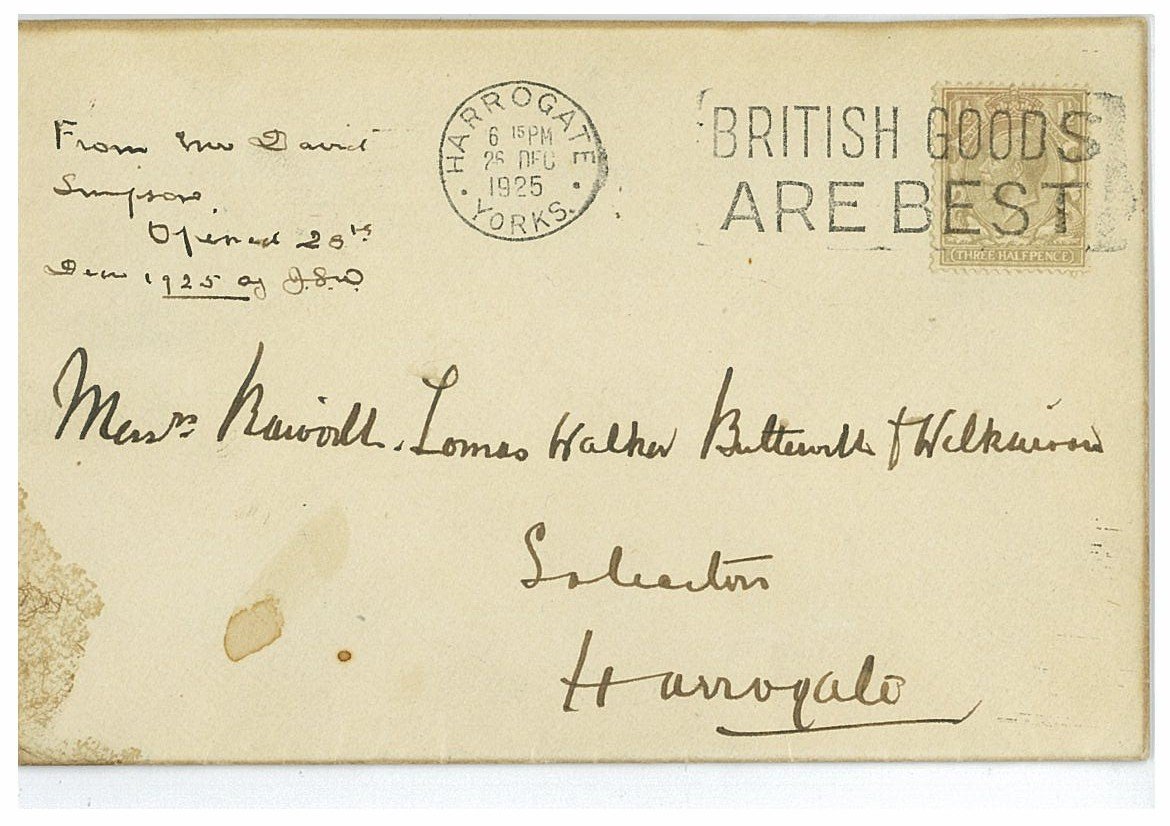 From Mr David
Simpson.
Opened 28th
Dec 1925 by J.S.W.
HARROGATE
6 15PM
26 DEC
1925
YORKS.
BRITISH GOODS
ARE BEST
THREE HALFPENCE
Messrs Raworth. Lomas Walker Butterworth & Wilkinson
Solicitors
Harrogate